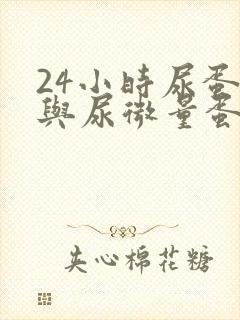 24小時尿蛋
與尿微量蛋
夹心棉花糖